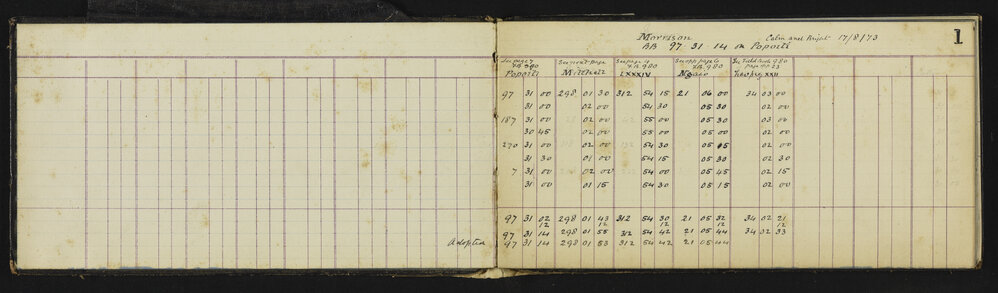 1
Morrison Calm and Bright 17/8/73
BB 97·31·14 on Poporti
See page 7 See next page See page 4 See opp page 6 See Field Book 980
F.B. 980 F.B. 980 F.B. 980 page 23
Poporti Mitchell LXXXIV Ngaio XXII
97 31 00 298 01 30 312 54 15 21 06 00 34 03 00
31 00 02 00 54 30 05 30 02 00
187 31 00 02 00 55 00 05 30 03 00
30 45 02 00 55 00 05 00 02 00
270 31 00 02 00 54 30 05 15 02 00
31 30 01 00 54 15 05 30 02 30
7 31 00 02 00 54 00 05 45 02 15
31 00 01 15 54 30 05 15 02 00
97 31 02 298 01 43 312 54 30 21 05 32 34 02 21
12 12 12 12 12
97 31 14 298 01 55 312 54 42 21 05 44 34 02 33
Adopted 97 31 14 298 01 53 312 54 42 21 05 44